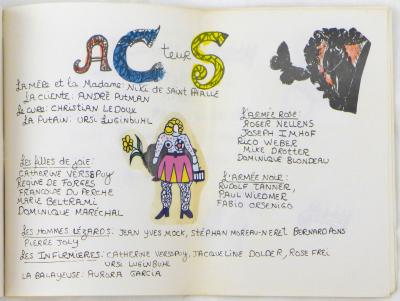 ACteurS
La Mère et la Madame: Niki de Saint Phalle
La cliente: André Putman
Le curé: Christian Ledoux
La Putain: Ursi Luginbuhl
Les filles de joie:
Catherine Verspuy
de Forges
Françoise du Perche
Marie Beltrami
Dominique Maréchal
L'Armée Rose:
Roger Nellens
Joseph Imhof
Rico Weber
Mike Drotter
Dominique Blondeau
L'Armée Noire:
Rudolf Tanner,
Paul Wiedmer
Fabio Orsenigo
Les Hommes Lézards: Jean Yves Mock, Stéphan Moreau-Neret Bernard Pons
Pierre Joly
Les Infirmieres: Catherine Verspuy, Jacqueline Dolder, Rose Frei
Ursi Luginbuhl
La Balayeuse: Aurora Garcia